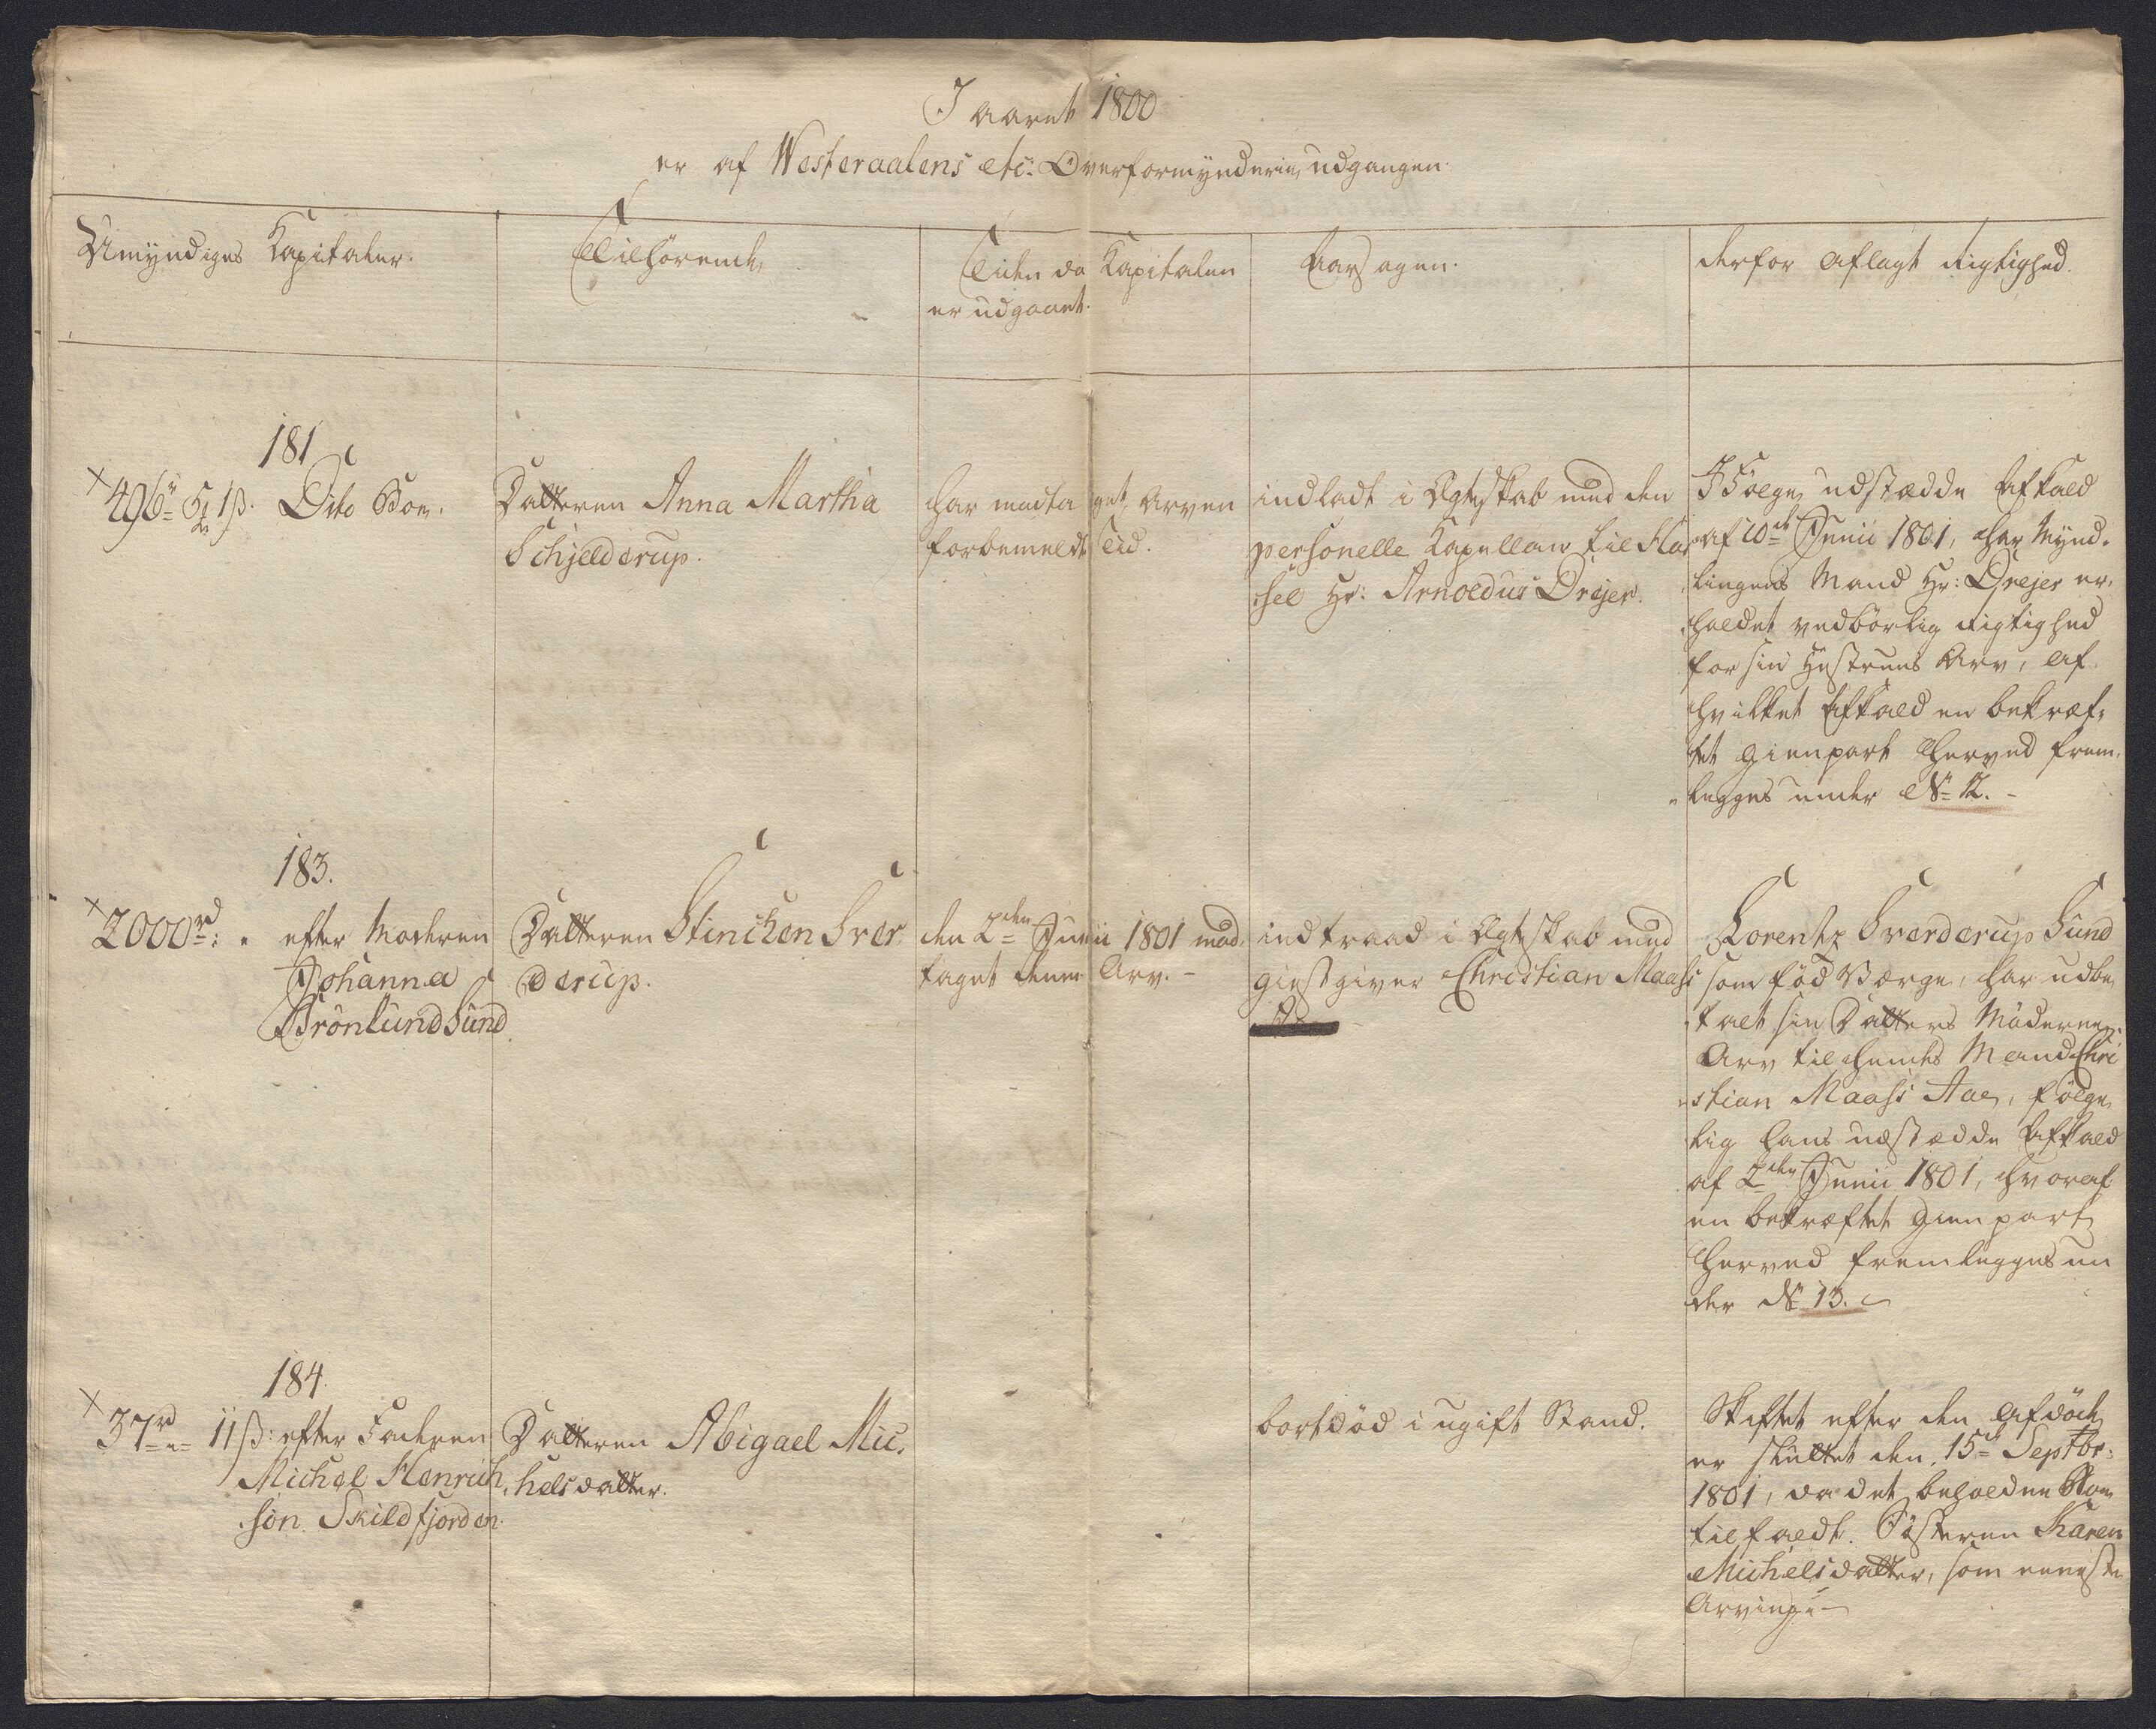 I aaret 1800
er af Westeraalens etc: Overformynderie, udgangen.
Umyndiges Kapitaler.
Tilhørende,
Tiden da Kapitalen
er udgaaet.
Aarsagen.
derfor aflagt Rigtighed.
181
496 5 1ß. Dito Boe.
Datteren Anna Martha
Schjelderup.
har modtaget Arven
forbemeldt Tid.
indladt i Ægteskab med den
personelle Kapellan til Has
sel Hr: Arnoldus Dreyer.
I Følge, udstædde Afkald
af 10de Junii 1801, har Mynd-
lingens Mand Hr: Dreyer er-
holdet vedbørlig Rigtighed
for sin Hustrues Arv, af
hvilket Afkald en bekræf-
tet Gienpart herved frem-
legges under No 12. -
183.
2000rd: " efter Moderen
Johanna
Brønlund Sund
Datteren Stinchen Sver
derup.
den 2den Junii 1801 mod-
taget denne Arv. -
indtraad i Ægteskab med
Giestgiver Christian Maasi
Lorentz Sverderup Sund
som fød Værge, har udbe-
talt sin Datters Møderne-
Arv til hendes Mand Chri
stian Maasi Aae, følge-
lig hans udstædde Afkald
af 2den Junii 1801, hvoraf
en bekræftet Gienpart
herved fremlegges un
der No 13.
184.
37rd " 11ß: efter Faderen
Michel Henrich
søn Skildfjorden.
Datteren Abigael Mic-
helsdatter.
bortdød i ugift Stand.
Skiftet efter den afdøde
er sluttet den 15de Septbr:
1801, da det beholdne Boe
tilfaldt Søsteren Karen
Michelsdatter, som eeneste
Arving. -